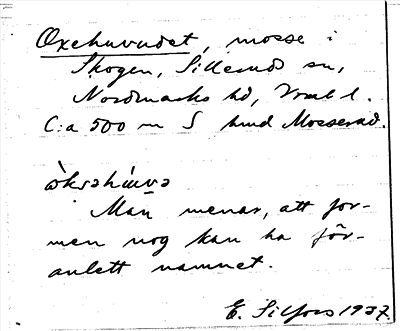 Oxehuvudet, mosse i
Skogen, Silleruds sn,
Nordmarks hd, Vrml l.
C:a 500 m S hmd Mosserud.
òkʃəhúuvə
Man menar, att for-
men nog kan ha för-
anlett namnet.
E. Silfors 1937.